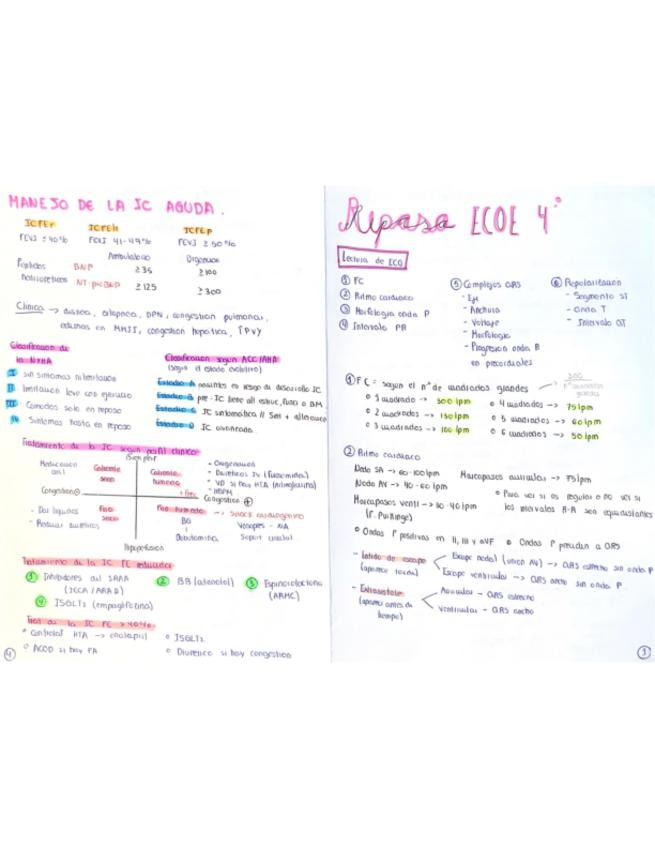 MANEJO DE LA IC AGUDA.
ICFEr ICFElr ICFEp
FEVI ≤ 40% FEVI 41-49% FEVI ≥ 50%
Ambulatorio Urgencias
Péptidos BNP ≥ 35 ≥ 100
natriuréticos NT-proBNP ≥ 125 ≥ 300
Clínica → disnea, ortopnea, DPN, congestión pulmonar,
edemas en MMII, congestión hepática, ↑PVY
Clasificación de
la NYHA
I sin síntomas ni limitación
II limitación leve con ejercicio
III Cómodos solo en reposo
IV Síntomas hasta en reposo
Clasificación según ACC/AHA
(según el estado evolutivo)
Estadio A pacientes en riesgo de desarrollo IC
Estadio B pre-IC tiene alt estruc, func o BM
Estadio C IC sintomática // Sint +
Estadio D IC avanzada
Tratamiento de la IC según perfil clínico
Bien perf
Caliente
seco
Caliente
húmedo
• Oxigenación
• Diuréticos IV (furosemida)
• VD si hay HTA (nitroglicerina)
• HBPM
Congestión ⊖
Congestión ⊕
- Dar líquidos
- Revisar diuréticos
Frío
seco
Frío húmedo → Shock cardiogénico
Dobutamina
Vasopres - NA
Hipoperfusión
Tratamiento de la IC FE reducida
① Inhibidores del SRAA
(IECA / ARA II)
② BB (atenolol)
③ Espironolactona
(ARMC)
④ ISGLT2 (empaglifozina)
Trat de la IC FE > 40%
° Control HTA → enalapril
° ISGLT2
° ACOD si hay FA
° Diurético si hay congestión
4
Repaso ECOE 4°
Lectura de ECG
① FC
② Ritmo cardiaco
③ Morfología onda P
④ Intervalo PR
⑤ Complejos QRS
- Eje
- Anchura
- Voltaje
- Morfología
- Progresión onda R
en precordiales
⑥ Repolarización
- Segmento ST
- Onda T
- Intervalo QT
① FC = según el nº de cuadrados grandes
300
nº cuadrados
grandes
° 1 cuadrado → 300 lpm
° 2 cuadrados → 150 lpm
° 3 cuadrados → 100 lpm
° 4 cuadrados → 75 lpm
° 5 cuadrados → 60 lpm
° 6 cuadrados → 50 lpm
② Ritmo cardiaco
Nodo SA → 60-100 lpm
Marcapasos auricular → 75 lpm
Nodo AV → 40-60 lpm
Marcapasos ventri → 20-40 lpm
(F. Purkinge)
° Para ver si es regular o no ver si
los intervalos R-R son equidistantes
° Ondas P positivas en II, III y aVF
° Ondas P preceden a QRS
- Latido de escape
(aparece tarde)
Escape nodal (unión AV) → QRS estrecho sin onda P
Escape ventricular → QRS ancho sin onda P.
- Extrasístole
(aparece antes de
tiempo)
Auricular - QRS estrecho
Ventricular - QRS ancho
1